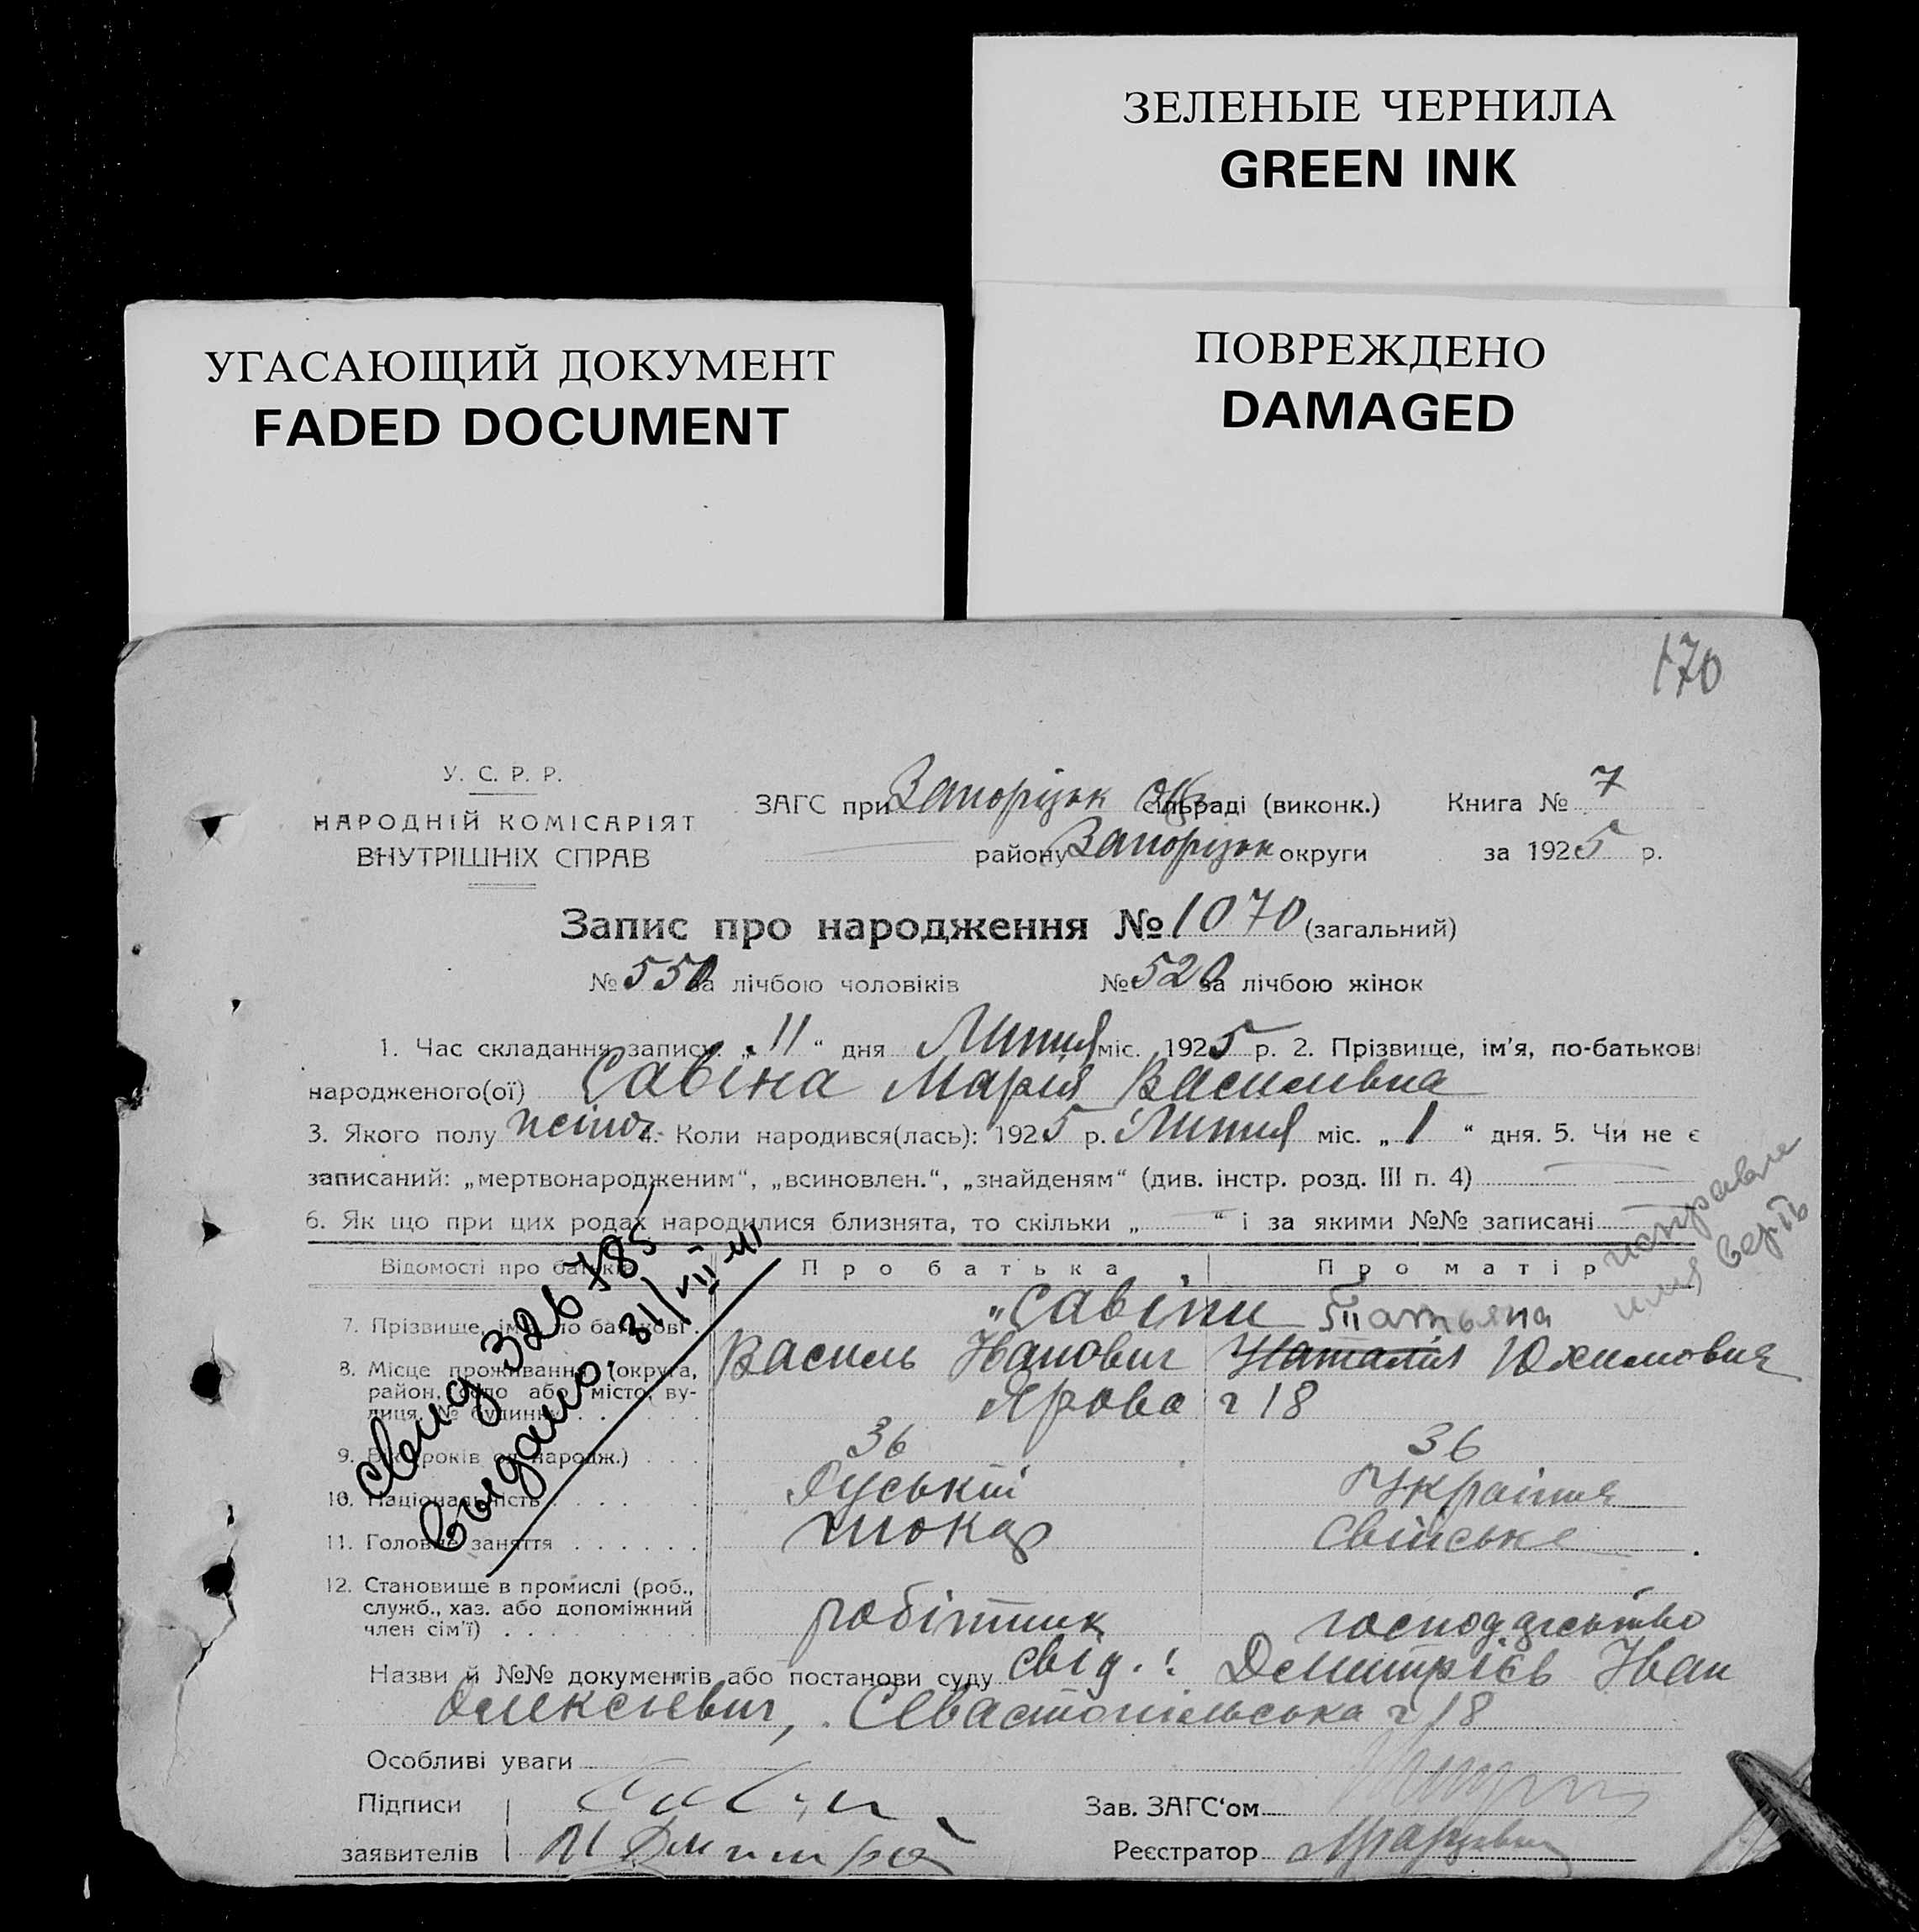 ЗЕЛЕНЫЕ ЧЕРНИЛА
GREEN INK
УГАСАЮЩИЙ ДОКУМЕНТ
FADED DOCUMENT
ПОВРЕЖДЕНО
DAMAGED
170
У. С. Р. Р.
НАРОДНІЙ КОМІСАРІЯТ
ВНУТРІШНІХ СПРАВ
ЗАГС при Запорізьк сільраді (виконк.) Книга № 7
району Запорізьк округи за 1925 р.
Запис про народження № 1070 (загальний)
№ 550 за лічбою чоловіків № 520 за лічбою жінок
1. Час складання запису: „11“ дня Липня міс. 1925 р. 2. Прізвище, ім'я, по-батькові
народженого(ої) Савіна Марія Василивна
3. Якого полу жіноч 4. Коли народився(лась): 1925 р. Липня міс. „1“ дня. 5. Чи не є
записаний: „мертвонародженим“, „всиновлен.“, „знайденям“ (див. інстр. розд. III п. 4)
6. Як що при цих родах народилися близнята, то скільки „ “ і за якими №№ записані
исправле
имя верть
Відомості про батьків Про батька Про матір
7. Прізвище, ім'я, по батькові „Савіни Татьяна
Василь Іванович Наталія Юхимовна
8. Місце проживання (округа, район, село або місто, ву-
лиця, № будинку) Ярова 2 18
9. Вік (років од народж.) 36 36
10. Національність Руський Україння
11. Головне заняття токар Свійське
12. Становище в промислі (роб.,
служб., хаз. або допоміжний
член сім'ї) робітник господарство
Свид 326785
Выдано 31/VII-41
Назви й №№ документів або постанови суду свід.: Демитрієв Іван
Олексієвич, Севастопільська 2 18
Особливі уваги
Підписи Савин Зав. ЗАГС'ом
заявителів Реєстратор